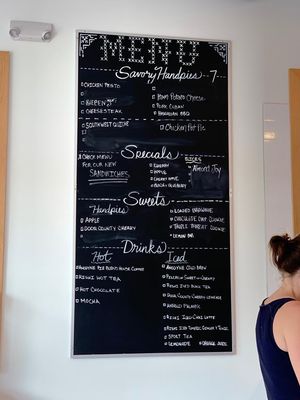 MENU
Savory Handpies 7
CHICKEN PESTO
HAM POTATO CHEESE
BIEBEN
PORK CUBAN
CHEESESTEAK
HAWAIIAN BBQ
SOUTHWEST QUICHE
CHICKEN POT PIE
CHECK MENU
FOR OUR NEW
SANDWICHES
Specials
CHERRY
APPLE
Almond Joy
Sweets
Handpies
APPLE
DOOR COUNTY CHERRY
LOADED BROWNIE
CHOCOLATE CHIP COOKIE
TRIPLE THREAT COOKIE
LEMON BAR
Drinks
Hot
HOUSE COFFEE
RISHI HOT TEA
HOT CHOCOLATE
MOCHA
Iced
ANODYNE COLD BREW
RISHI ICED BLACK TEA
DOOR COUNTY CHERRY LEMONADE
ARNOLD PALMER
RISHI ICED CHAI LATTE
RISHI ICED TURMERIC GINGER
SPORT TEA
LEMONADE
ORANGE JUICE